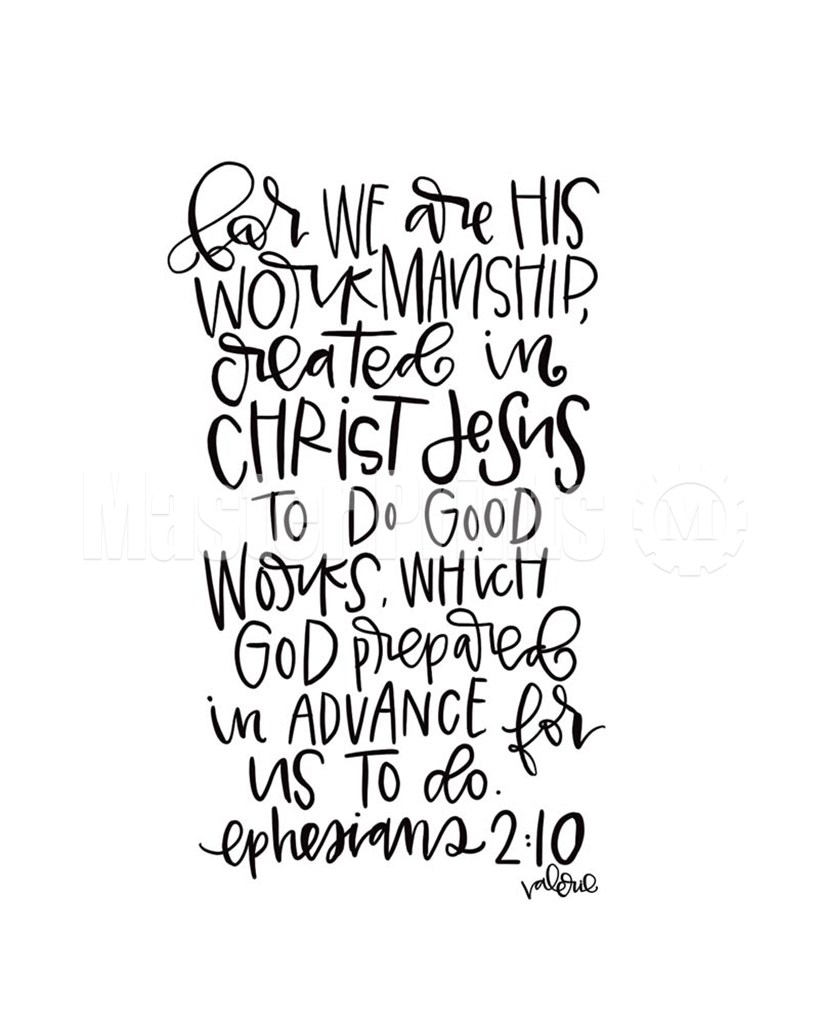 for WE are HIS
WORKMANSHIP,
created in
CHRIST Jesus
TO DO GOOD
WORKS, WHICH
GOD prepared
in ADVANCE for
us TO do.
ephesians 2:10
valerie
MasterPrints M